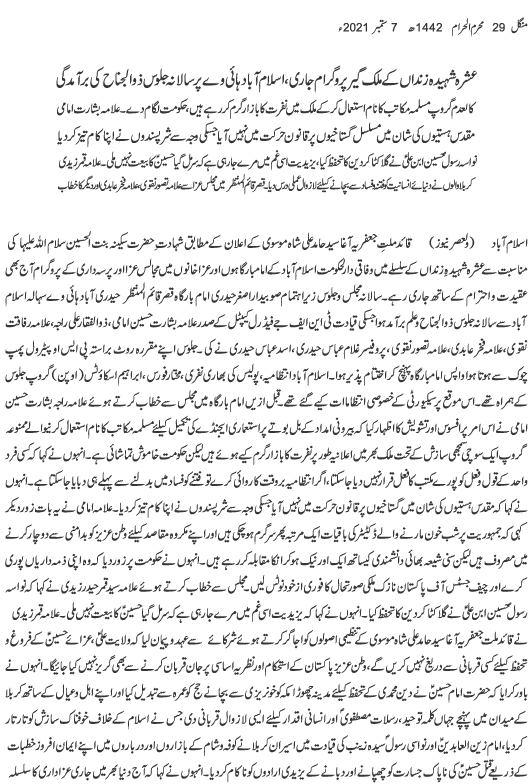 منگل 29 محرم الحرام 1442ھ 7 ستمبر 2021ء
عشرہ شہیدہ زنداں کے ملک گیر پروگرام جاری، اسلام آباد ہائی وے پر سالانہ جلوس ذوالجناح کی برآمدگی
کالعدم گروپ مسلمہ مکاتب کا نام استعمال کر کے ملک میں نفرت کا بازار گرم کر رہے ہیں، حکومت لگام دے۔ علامہ بشارت امامی
مقدس ہستیوں کی شان میں مسلسل گستاخیوں پر قانون حرکت میں نہیں آیا جسکی وجہ سے شرپسندوں نے اپنا کام تیز کر دیا
نواسہ رسول حسین ابن علی نے گلا کٹا کر دین کا تحفظ کیا، یزیدیت اسی غم میں مرے جا رہی ہے کہ سر مل گیا حسین کا بیعت نہیں ملی۔ علامہ قمر زیدی
کربلا والوں نے دنیائے انسانیت کو فتنہ و فساد سے بچانے کیلئے لازوال عملی درس دیا۔ قصر قائم المنتظر میں مجلس عزا سے علامہ تصور نقوی، علامہ فخر عابدی اور دیگر کا خطاب
اسلام آباد (العصر نیوز) قائد ملت جعفریہ آغا سید حامد علی شاہ موسوی کے اعلان کے مطابق شہادت حضرت سکینہ بنت الحسین سلام اللہ علیہا کی
مناسبت سے عشرہ شہیدہ زنداں کے سلسلے میں وفاقی دارالحکومت اسلام آباد کے امام بارگاہوں اور عزا خانوں میں مجالس عزا اور پرسہ داری کے پروگرام آج بھی
عقیدت و احترام کے ساتھ جاری رہے۔ سالانہ مجلس و جلوس زیر اہتمام صوبیدار اصغر حیدری امام بارگاہ قصر قائم المنتظر حیدری آباد ہائی وے سہالہ اسلام
آباد سے سالانہ جلوس ذوالجناح و علم برآمد ہوا جسکی قیادت ٹی این ایف جے فیڈرل کیپٹل کے صدر علامہ بشارت حسین امامی، ذوالفقار علی راجہ، علامہ رفاقت
نقوی، علامہ فخر عابدی، علامہ تصور نقوی، پروفیسر غلام عباس حیدری، اسد عباس حیدری نے کی۔ جلوس اپنے مقررہ روٹ براستہ پی ایس او پیٹرول پمپ
چوک سے ہوتا ہوا واپس امام بارگاہ پہنچ کر اختتام پذیر ہوا۔ اسلام آباد انتظامیہ، پولیس کی بھاری نفری، مختار فورس، ابراہیم اسکاؤٹس (اوپن) گروپ جلوس
کے ہمراہ تھے۔ اس موقع پر سیکیورٹی کے خصوصی انتظامات کیے گئے تھے۔ قبل ازیں امام بارگاہ میں مجلس سے خطاب کرتے ہوئے علامہ راجہ بشارت حسین
امامی نے اس امر پر افسوس اور تشویش کا اظہار کیا کہ بیرونی امداد کے بل بوتے پر استعماری ایجنڈے کی تکمیل کیلئے مسلمہ مکاتب کا نام استعمال کرنیوالے ممنوعہ
گروپ ایک سوچی سمجھی سازش کے تحت ملک بھر میں اعلانیہ طور پر نفرت کا بازار گرم کیے ہوئے ہیں لیکن حکومت خاموش تماشائی ہے۔ انہوں نے کہا کہ کسی فرد
واحد کے قول و فعل کو پورے مکتب کا فعل قرار نہیں دیا جا سکتا، اگر انتظامیہ بروقت کاروائی کرے تو فتنے کو فساد میں بدلنے سے پہلے ہی دبایا جا سکتا ہے۔ انہوں
نے کہا کہ مقدس ہستیوں کی شان میں گستاخیوں پر قانون حرکت میں نہیں آیا جسکی وجہ سے شرپسندوں نے اپنا کام تیز کر دیا۔ علامہ امامی نے یہ بات زور دیکر
کہی کہ جمہوریت پر شب خون مارنے والے ڈکٹیٹر کی باقیات ایک مرتبہ پھر سرگرم ہو چکی ہیں اور اپنے مکروہ مقاصد کیلئے وطن عزیز کو بدامنی سے دوچار کرنے
میں مصروف ہیں لیکن سنی شیعہ بھائی دانشمندی کیساتھ ایک اور نیک ہو کر انکا مقابلہ کر رہے ہیں۔ انہوں نے حکومت پر زور دیا کہ وہ اپنی ذمہ داریاں پوری
کرے اور چیف جسٹس آف پاکستان نازک ملکی صورتحال کا فوری از خود نوٹس لیں۔ مجلس سے خطاب کرتے ہوئے علامہ سید قمر حیدر زیدی نے کہا کہ نواسہ
رسول حسین ابن علی نے گلا کٹا کر دین کا تحفظ کیا۔ انہوں نے کہا کہ یزیدیت اسی غم میں مرے جا رہی ہے کہ سر مل گیا حسین کا بیعت نہیں ملی۔ علامہ قمر زیدی
نے قائد ملت جعفریہ آغا سید حامد علی شاہ موسوی کے تنظیمی اصولوں کو اجاگر کرتے ہوئے شرکائے سے عہد و پیمان لیا کہ ولایت علی، عزائے حسین کے فروغ و
تحفظ کیلئے کسی قربانی سے دریغ نہیں کریں گے، وطن عزیز پاکستان کے استحکام اور نظریہ اساسی پر جان قربان کرنے سے بھی گریز نہیں کیا جائیگا۔ انہوں نے
باور کرایا کہ حضرت امام حسین نے دین محمدی کے تحفظ کیلئے مدینہ چھوڑا مکہ کو خونریزی سے بچانے حج کو عمرہ سے تبدیل کیا اور اپنے اہل و عیال کے ساتھ کربلا
کے میدان میں پہنچے جہاں کلمہ توحید، رسالت مصطفوی اور انسانی اقدار کیلئے ایسی لازوال قربانی دی جس نے اسلام کے خلاف خوفناک سازش کو تار تار
کر دیا، امام زین العابدین اور نواسی رسول سیدہ زینب کی قیادت میں اسیران کربلا نے کوفہ و شام کے بازاروں اور درباروں میں اپنے ایمان افروز خطبات
کے ذریعے قتل حسین کی ناپاک جسارت کو چھپانے اور دبانے کے یزیدی ارادوں کو ناکام کر دیا۔ انہوں نے کہا کہ آج دنیا بھر میں جاری عزاداری کا سلسلہ